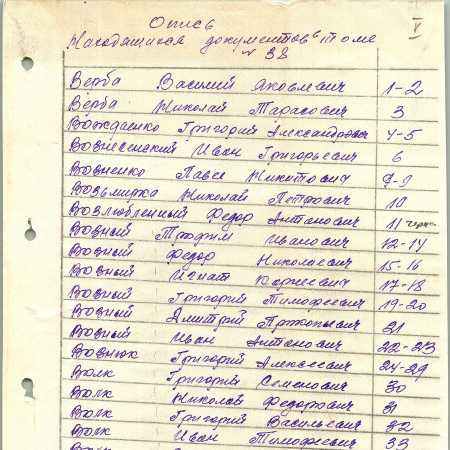 Опись
Находящихся документов в томе
№ 38
V
Верба Василий Яковлевич 1-2
Верба Николай Тарасович 3
Вождаенко Григорий Александрович 4-5
Вознесенский Иван Григорьевич 6
Возненко Павел Никитович 7-9
Возьмирка Николай Петрович 10
Возлюбленный Федор Антонович 11
Возный Трофим Иванович 12-14
Возный Федор Николаевич 15-16
Возный Игнат Корнеевич 17-18
Возный Григорий Тимофеевич 19-20
Возный Дмитрий Прокопович 21
Возный Иван Антонович 22-23
Вознюк Григорий Алексеевич 24-29
Волк Григорий Семенович 30
Волк Николай Федорович 31
Волк Григорий Васильевич 32
Волк Иван Тимофеевич 33